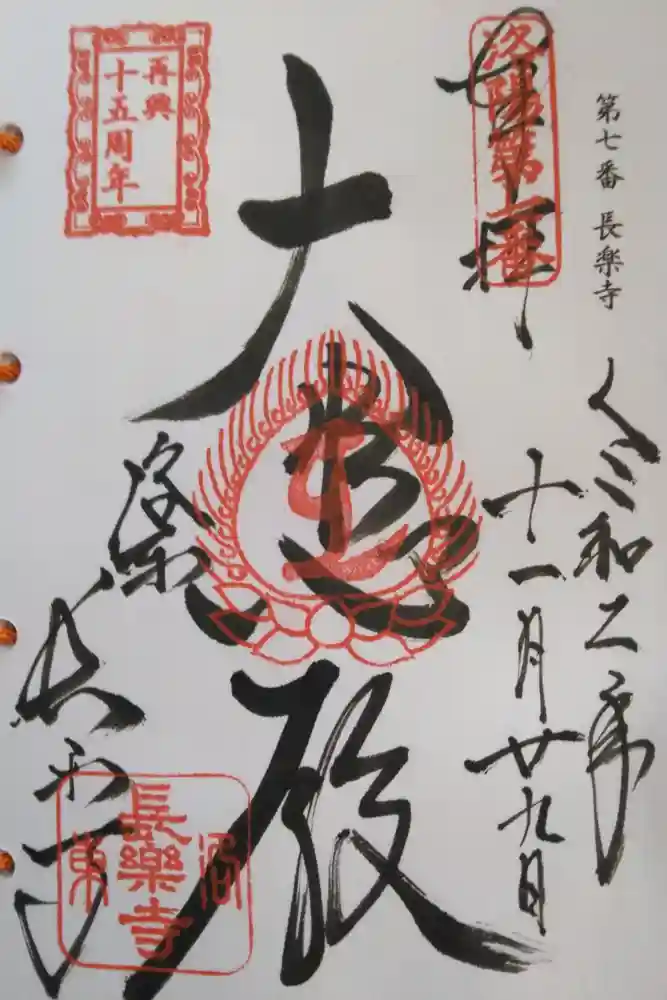 第七番 長楽寺
令和二年
十一月廿九日
奉拝
洛陽第七番
大悲殿
再興
十五周年
洛東
長楽寺
洛
長樂寺
東